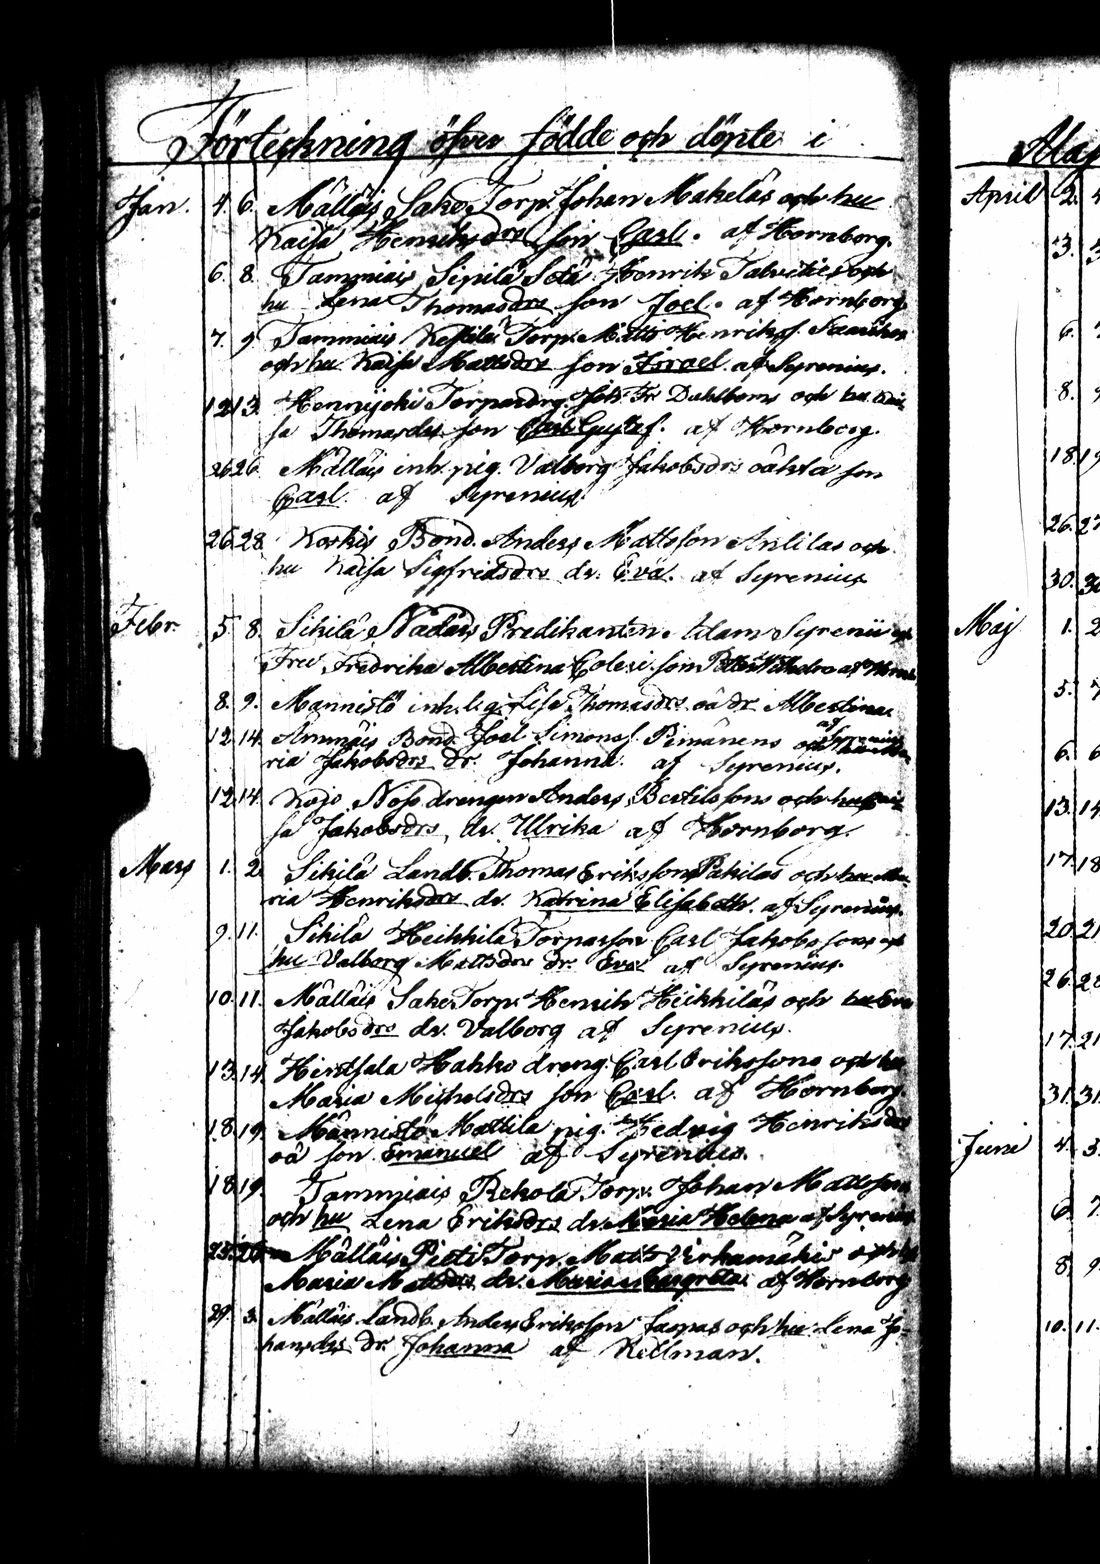 Förteckning öfver födde och döpte i
Jan. 4. 6. Mälläis Sako Torp. Johan Makeläs och hu
Kaisa Henriksdrs son Carl. af Hornborg.
6. 8. Tammiais Sipilä Henrik och
hu Lena Thomasdrs son Joel. af Hornborg.
7. 9 Tammiais Torp. Matts Henriks.
och hu Kaisa Mattsdrs son Israel. af Syrenius.
12 13. Hennijoki Torpardrg. Joh. Fr. Dahlboms och hu Kai
sa Thomasdrs son Carl Gustaf. af Hornborg.
26 26. Mälläis inh. pig. Valborg Jakobsdrs oäkta son
Carl af Syrenius.
26. 28. Koskis Bond. Anders Mattsson Anttilas och
hu Kaisa Sigfridsdrs dr. Eva. af Syrenius
Febr. 5 8. Sikilä Predikanten Adam Syrenii
Fru Fredrika Albertina son
8. 9. Mannistö inh. Lisa Thomasdrs oä dr. Albertina.
af Syrenius
12. 14. Ämmäis Bond. Joel Simons. och hu Ma
ria Jakobsdrs dr. Johanna. af Syrenius.
12 14. Kojo drengen Anders Bertilssons och hu Kai
sa Jakobsdrs dr. Ulrika af Hornborg.
Mars 1. 2 Sikilä Landb. Thomas Erikssons Pakilas och hu Ma
ria Henriksdrs dr. Katrina Elisabeth. af Syrenius.
9. 11. Sikilä Heikkilä Torparson Carl Jakobssons
hu Valborg Mattsdrs dr. Eva af Syrenius.
10. 11. Mälläis Sako Torp. Henrik Heikkiläs och hu Eva
Jakobsdrs dr. Valborg af Syrenius.
13. 14. Hirdsala Hakko dreng. Carl Erikssons och hu
Maria Michelsdrs son Carl. af Hornborg.
18. 19. Männistö Mattila pig. Hedvig Henriksdrs
oä son Emanuel af Syrenius.
18 19. Tammiais Rekola Torp. Johan Mattsson
och hu Lena Eriksdrs dr. Maria Helena af Syrenius
25. Mälläis Torp. Matts och hu
Maria Mattsdrs dr. Maria Margreta. af Hornborg
29. 3. Mälläis Landb. Anders Eriksson Jaspas och hu Lena Jo-
hansdrs dr. Johanna af Kellman.
Maj
April 2.
3.
6.
8.
18 19
26. 27
30. 30
Maj 1. 2
5. 7
6. 6
13. 14
17. 18
20. 21
26. 28
17. 21
31. 31
Juni 4. 5
6. 7.
8. 9
10. 11.